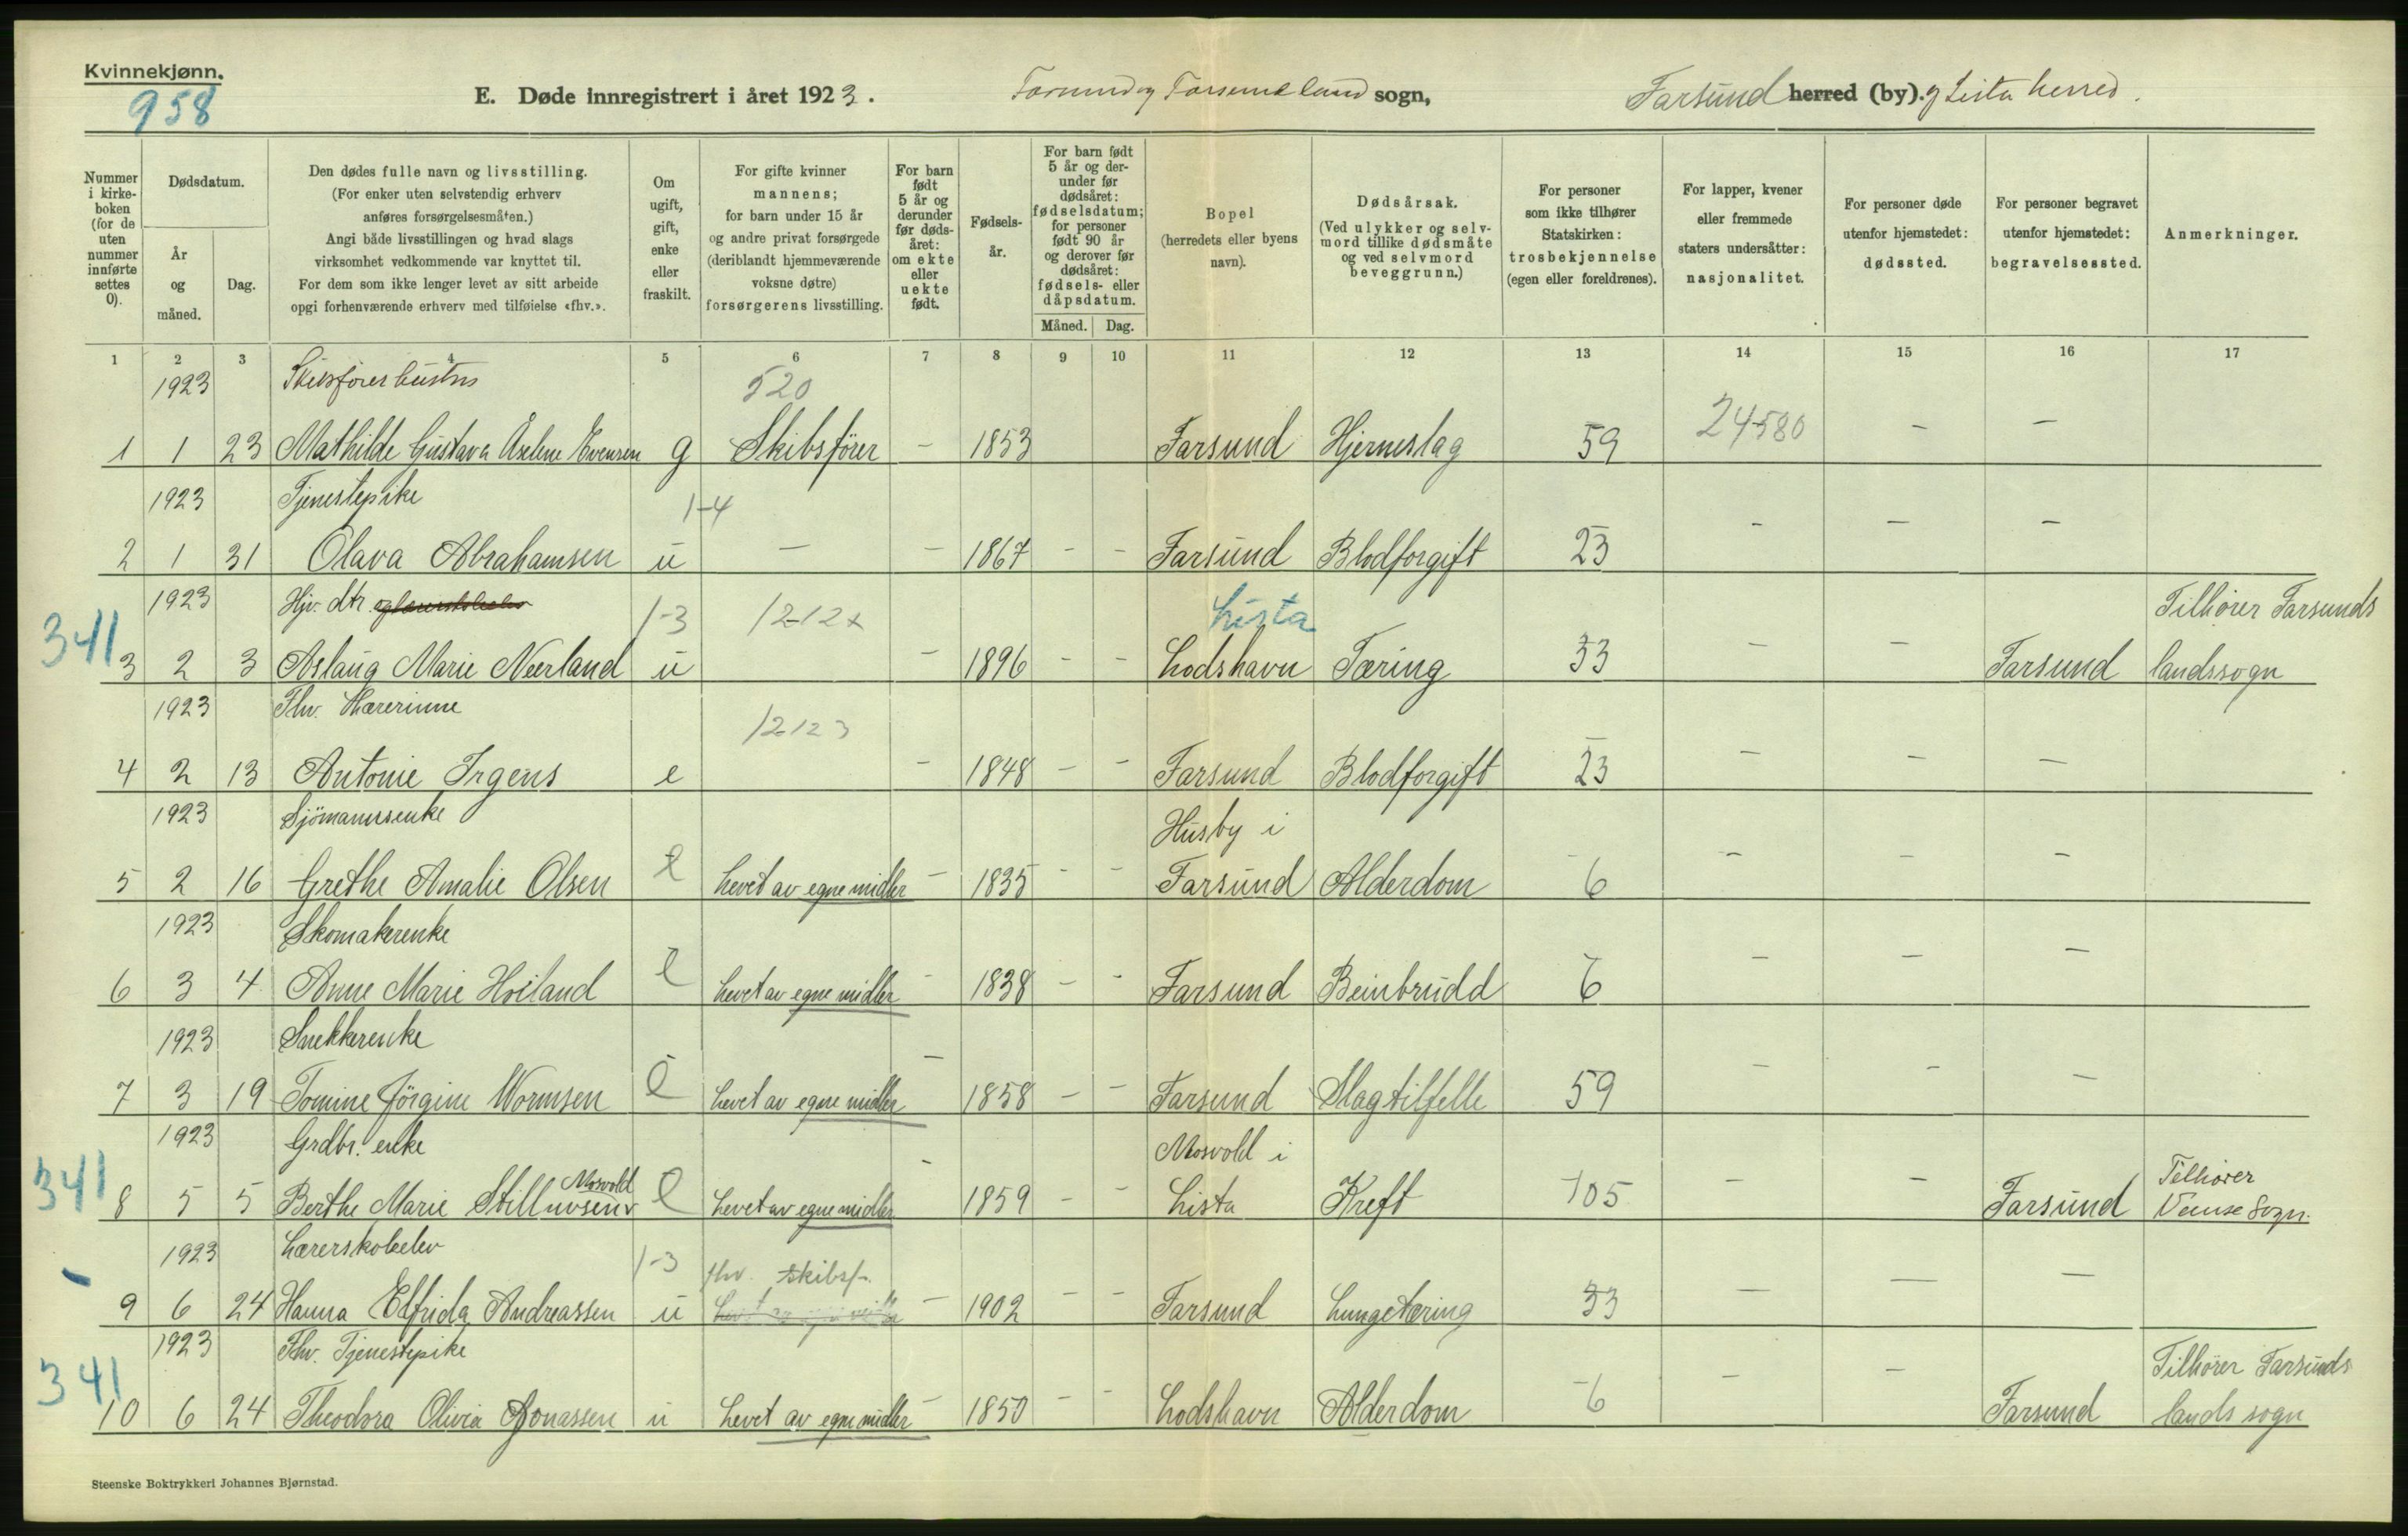 Kvinnekjønn.
958
E. Døde innregistrert i året 1923. Farsund og Farsunds land sogn, Farsund herred (by). og Lista herred.
Nummer i kirke-boken (for de uten nummer innførte settes 0).
Dødsdatum.
År og måned.
Dag.
Den dødes fulle navn og livsstilling.
(For enker uten selvstendig erhverv
anføres forsørgelsesmåten.)
Angi både livsstillingen og hvad slags
virksomhet vedkommende var knyttet til.
For dem som ikke lenger levet av sitt arbeide
opgi forhenværende erhverv med tilføielse «fhv.».
Om ugift, gift, enke eller fraskilt.
For gifte kvinner
mannens;
for barn under 15 år
og andre privat forsørgede
(deriblandt hjemmeværende
voksne døtre)
forsørgerens livsstilling.
For barn født 5 år og derunder før døds-året: om ekte eller uekte født.
Fødsels-år.
For barn født 5 år og der-under før dødsåret: fødselsdatum; for personer født 90 år og derover før dødsåret: fødsels- eller dåpsdatum.
Måned. Dag.
Bopel
(herredets eller byens
navn).
Dødsårsak.
(Ved ulykker og selv-
mord tillike dødsmåte
og ved selvmord
beveggrunn.)
For personer
som ikke tilhører
Statskirken:
trosbekjennelse
(egen eller foreldrenes).
For lapper, kvener
eller fremmede
staters undersåtter:
nasjonalitet.
For personer døde
utenfor hjemstedet:
dødssted.
For personer begravet
utenfor hjemstedet:
begravelsessted.
Anmerkninger.
1 2 3 4 5 6 7 8 9 10 11 12 13 14 15 16 17
1923 Skibsførerhustru 520
1 1 23 Mathilde Gustava Axeline Evensen g Skibsfører - 1853 Farsund Hjerneslag 59 24580 - -
1923 Tjenestepike 1-4
2 1 31 Olava Abrahamsen u - - 1867 - - Farsund Blodforgift 23 - - -
1923 Hjv. dtr. 1-3 1212x Lista Tilhører Farsunds
341 3 2 3 Aslaug Marie Neerland u - 1896 - - Lodshavn Tæring 33 - - Farsund landssogn
1923 Fhv. Lærerinne 12123
4 2 13 Antonie Irgens e - 1848 - - Farsund Blodforgift 23 - - -
1923 Sjömannsenke Husby i
5 2 16 Grethe Amalie Olsen e Levet av egne midler - 1835 - - Farsund Alderdom 6 - - -
1923 Skomakerenke
6 3 4 Anne Marie Hoiland e Levet av egne midler - 1838 - - Farsund Beinbrudd 6 - - -
1923 Snekkerenke
7 3 19 Tomine Jörgine Wormsen e Levet av egne midler - 1858 - - Farsund Slagtilfelle 59 - - -
1923 Grdbr. enke Mosvold i
341 8 5 5 Berthe Marie Mosvold e Levet av egne midler - 1859 - - Lista Kreft 105 - - Farsund Tilhører Vanse Sogn.
1923 Lærerskoleelev 1-3 fhv. skibsf.
9 6 24 Hanna Elfrida Andreassen u - 1902 - - Farsund Lungetæring 33 - - -
1923 Fhv. Tjenestepike Tilhører Farsunds
341 10 6 24 Theodora Olivia Jonassen u Levet av egne midler - 1850 - - Lodshavn Alderdom 6 - - Farsund lands sogn
Steenske Boktrykkeri Johannes Bjørnstad.